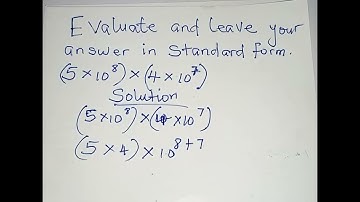 Evaluate and leave your
answer in standard form.
(5×10⁸)×(4×10⁷)
Solution
(5×10⁸)×(4×10⁷)
(5×4)×10⁸⁺⁷